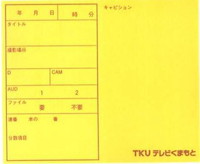 年 月 日 時 分
キャビション
タイトル
撮影場所
D CAM
AUD 1 2
ファイル 要 不要
準備 本の 番
分類項目
TKU テレビくまもと